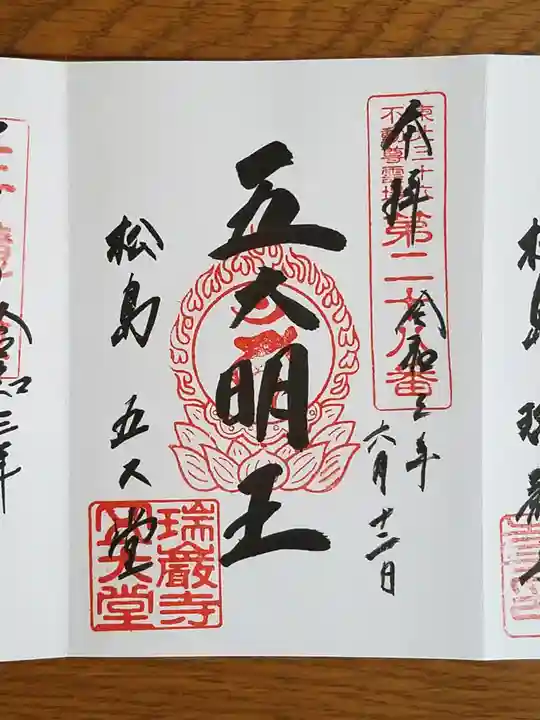 奉拝
東北三十六
不動尊霊場
第二十八番
令和三年
六月十二日
五大明王
松島 五大堂
瑞巌寺
五大堂
令和三年